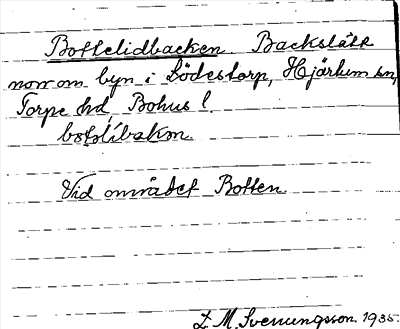 Bottelidbacken Backslätt
norr om byn i Lödestorp, Hjärtum sn,
Torpe hd, Bohus l.
Vid området Botten
L. M. Svenungsson. 1935.